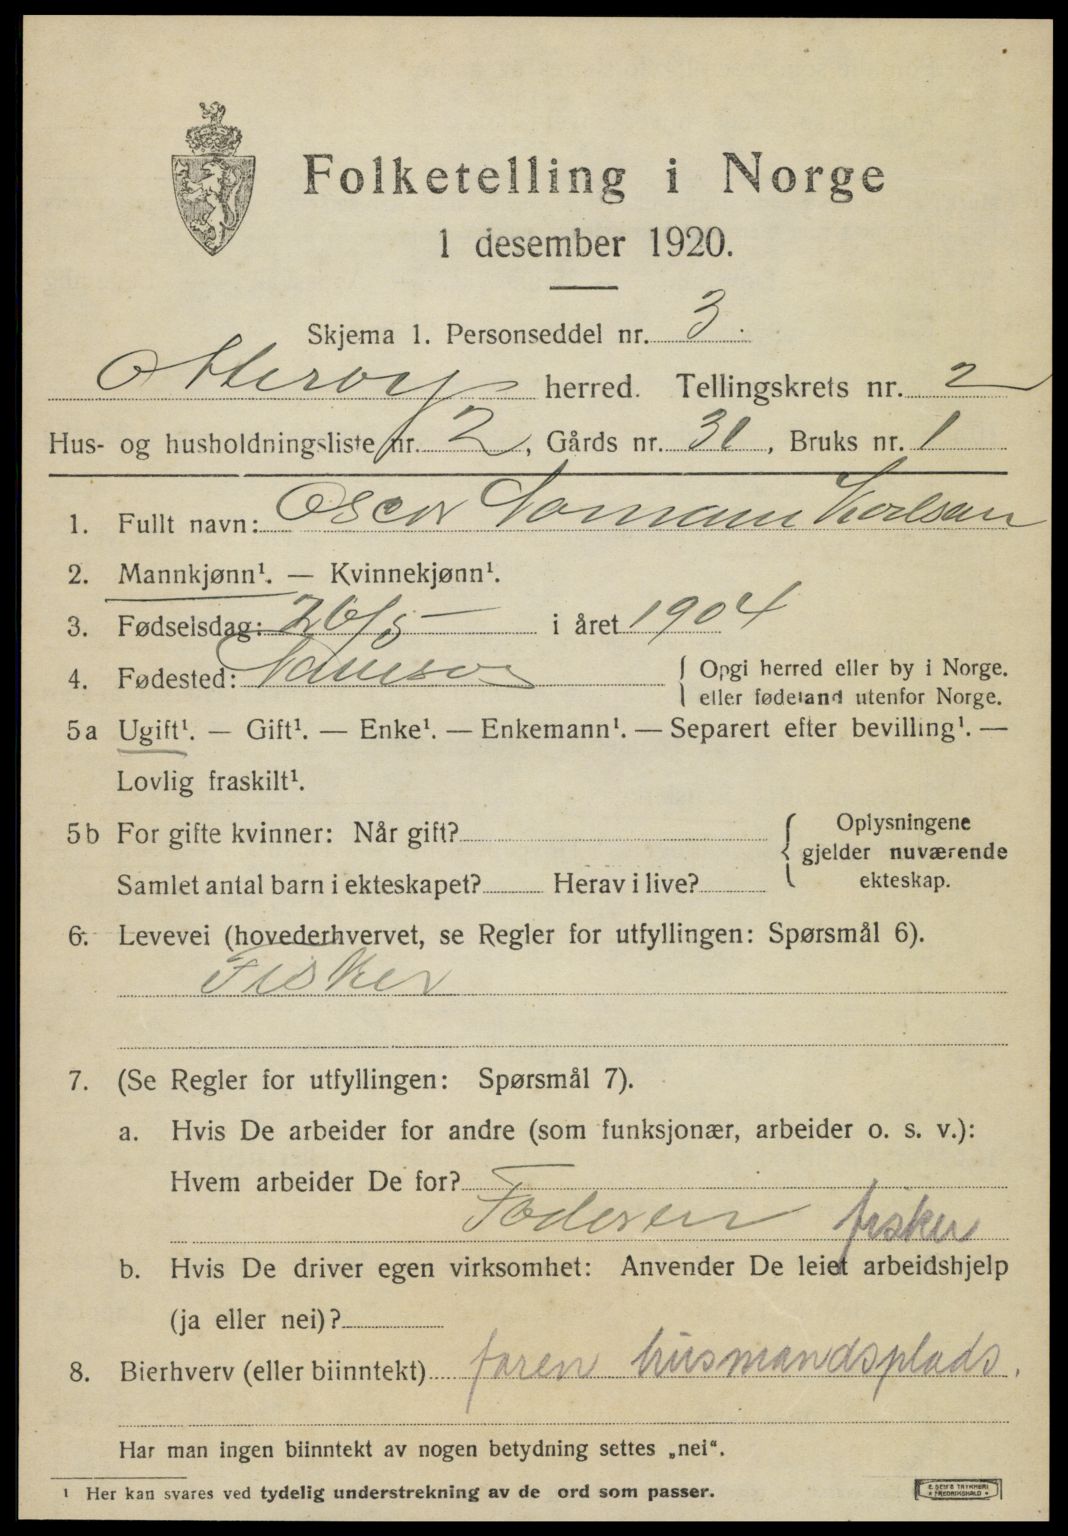 Folketelling i Norge
1 desember 1920.
Skjema 1. Personseddel nr. 3.
Otterøy herred. Tellingskrets nr. 2
Hus- og husholdningsliste nr. 2, Gårds nr. 31, Bruks nr. 1
1. Fullt navn: Oscar Normann Karlsen
2. Mannkjønn¹. — Kvinnekjønn¹.
3. Fødselsdag: 26/5 i året 1904
4. Fødested: { Opgi herred eller by i Norge.
eller fødeland utenfor Norge.
5a Ugift¹. — Gift¹. — Enke¹. — Enkemann¹. — Separert efter bevilling¹. —
Lovlig fraskilt¹.
5b For gifte kvinner: Når gift? { Oplysningene
gjelder nuværende
Samlet antal barn i ekteskapet? Herav i live? ekteskap.
6. Levevei (hovederhvervet, se Regler for utfyllingen: Spørsmål 6).
Fisker
7. (Se Regler for utfyllingen: Spørsmål 7).
a. Hvis De arbeider for andre (som funksjonær, arbeider o. s. v.):
Hvem arbeider De for?
Faderen fisker
b. Hvis De driver egen virksomhet: Anvender De leiet arbeidshjelp
(ja eller nei)?
8. Bierhverv (eller biinntekt) faren husmandsplads.
Har man ingen biinntekt av nogen betydning settes „nei“.
¹ Her kan svares ved tydelig understrekning av de ord som passer.
E. SEM'S TRYKKERI
FREDRIKSHALD